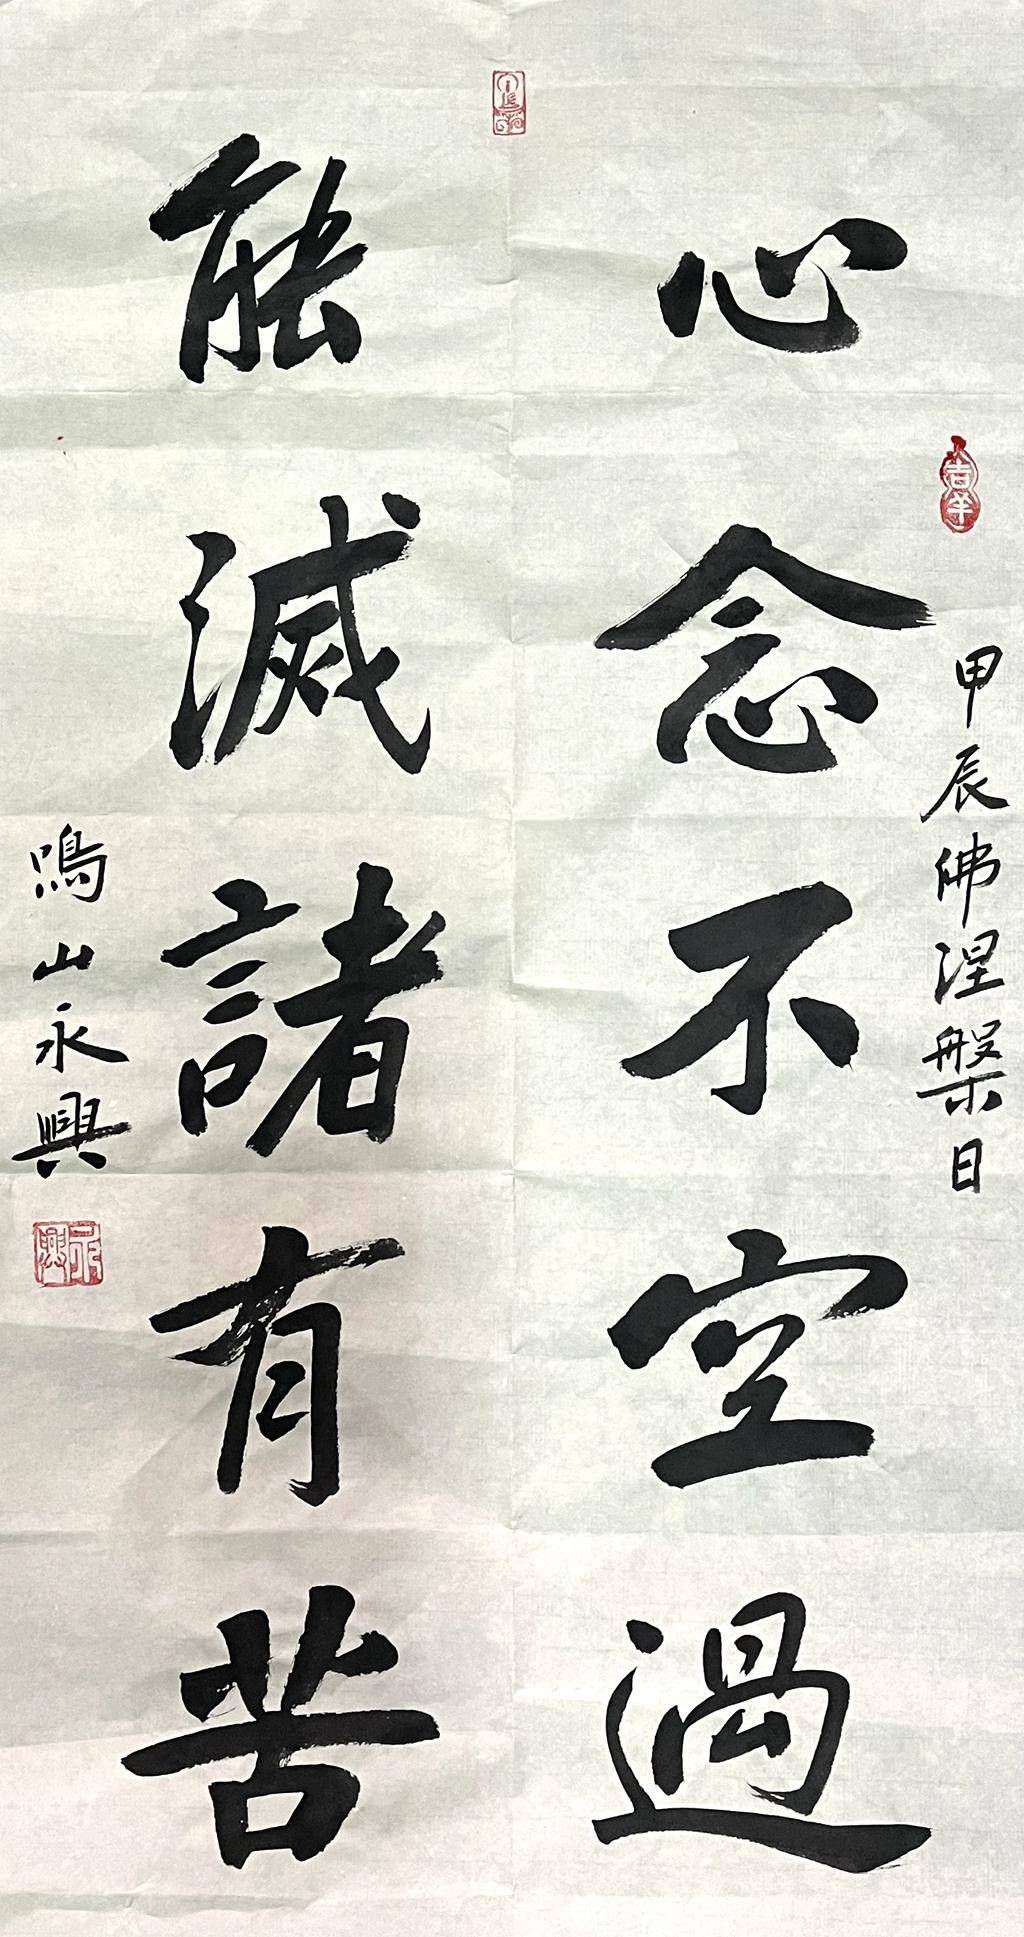 心念不空過
能滅諸有苦
甲辰佛涅槃日
鳴山永興
吉羊
永興